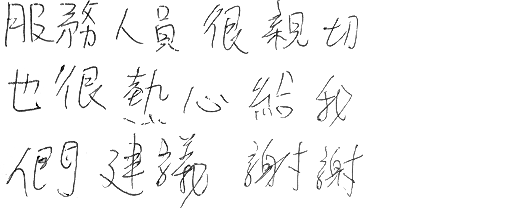 服務人員很親切
也很熱心給我
們建議 謝謝